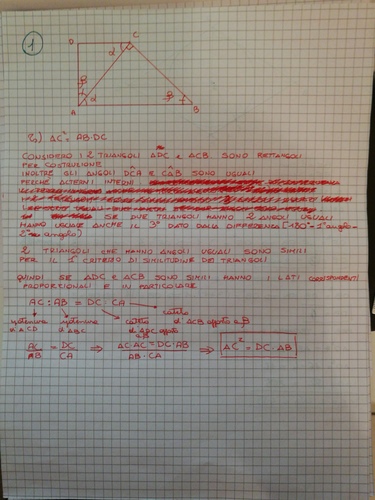 1
D
C
α
β
A
α
β
B
AC² = AB·DC
CONSIDERO I 2 TRIANGOLI ADC e ACB SONO RETTANGOLI
PER COSTRUZIONE
INOLTRE GLI ANGOLI DĈA e CÂB SONO UGUALI
PERCHÉ ALTERNI INTERNI
SE DUE TRIANGOLI HANNO 2 ANGOLI UGUALI
HANNO UGUALE ANCHE IL 3° DATO DALLA DIFFERENZA (180° - 1° angolo -
2° angolo)
2 TRIANGOLI CHE HANNO ANGOLI UGUALI SONO SIMILI
PER IL 1° CRITERIO DI SIMILITUDINE DEI TRIANGOLI
QUINDI SE ADC e ACB SONO SIMILI HANNO I LATI CORRISPONDENTI
PROPORZIONALI E IN PARTICOLARE
AC : AB = DC : CA
ipotenusa d'ACD
ipotenusa d'ABC
cateto d'ADC opposto
cateto d'ACB opposto a β
AC/AB = DC/CA ⇒ AC·AC = DC·AB / AB·CA ⇒ AC² = DC·AB